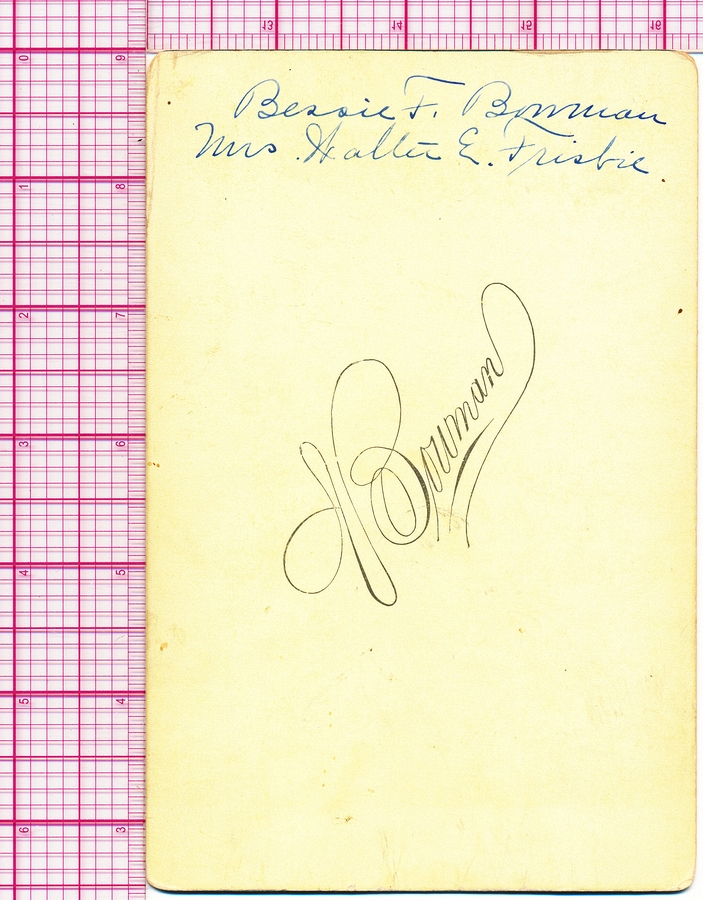 13 14 15 16
0 9
Bessie F. Bowman
Mrs. Walter E. Frisbie.
1 8
2 7
Bowman
3 6
4 5
5 4
6 3